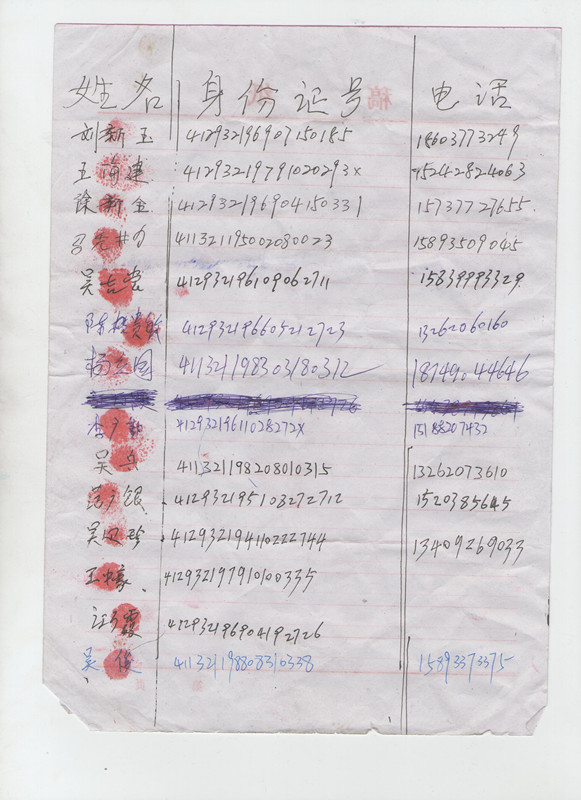 姓名 身份证号 电话
刘新玉 412932196907150185 18603773249
王 建 41293219791020293x 15242824063
徐新全 412932196904150331 15737727655
411321195002080023 15893509045
吴吉 412932196109062711 15839993329
陈 贵 412932196605212723 13262060160
杨 国 411321198303180312 18749044646
李 41293219611028272x 13188207432
吴 411321198208010315 13262073610
范 银 412932195108272712 1520385645
吴 珍 412932194110222744 13409269033
王 412932197910100335
汪 霞 412932196904192726
吴俊 411321198808310338 15893373375